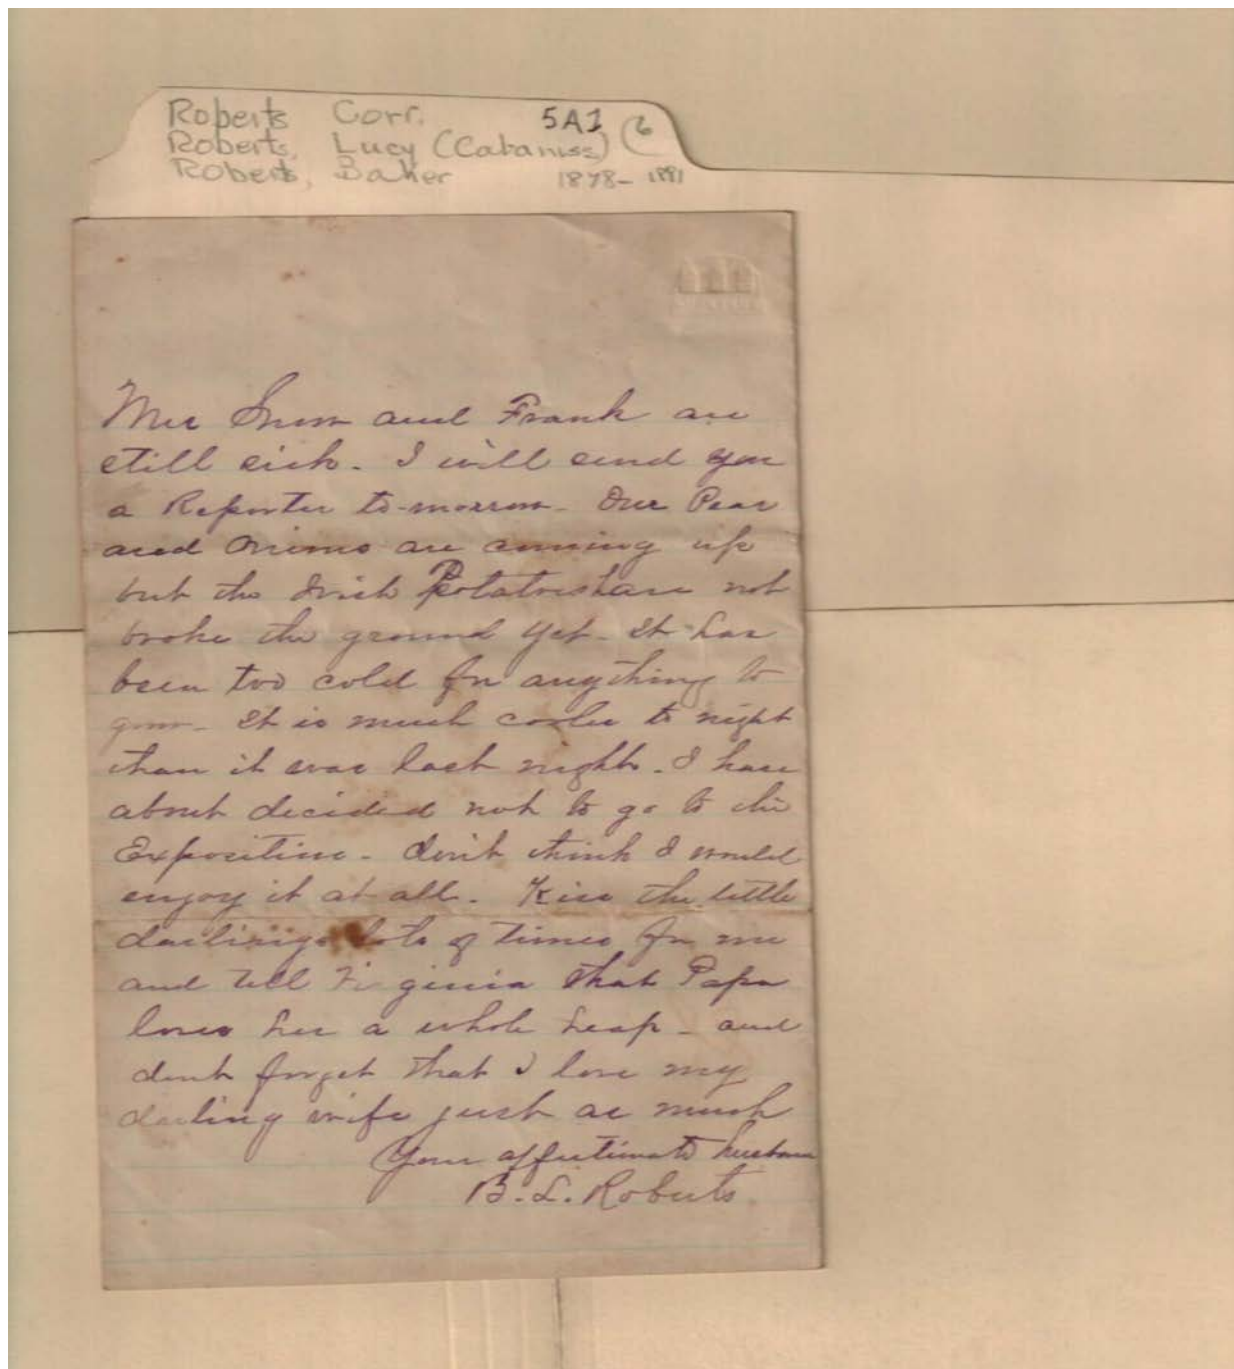 Roberts Corr. 5A1 6
Roberts, Lucy (Cabaniss)
Roberts, Baker 1878-1881
Mrs and Frank are
still sick. I will send you
a Reporter to-morrow. Our Peas
and Onions are coming up
but the Irish Potatoes have not
broke the ground yet. It has
been too cold for anything to
grow. It is much cooler to night
than it was last night. I have
about decided not to go to the
Exposition. don't think I would
enjoy it at all. Kiss the little
darlings lots of times for me
and tell Virginia that Papa
loves her a whole heap - and
dont forget that I love my
darling wife just as much
Your affectionate husband
B. L. Roberts.